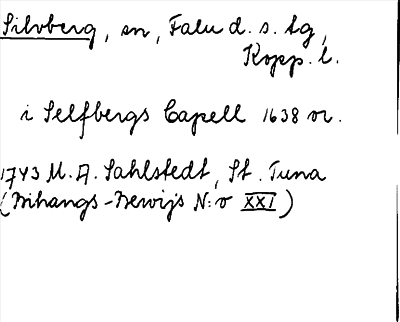 Silvberg, sn, Falu d. s. tg,
Kopp. l.
i Selfbergs Capell 1638 or.
1743 M. A. Sahlstedt, St. Tuna
(Bihangs-Bewijs N:o XXI)